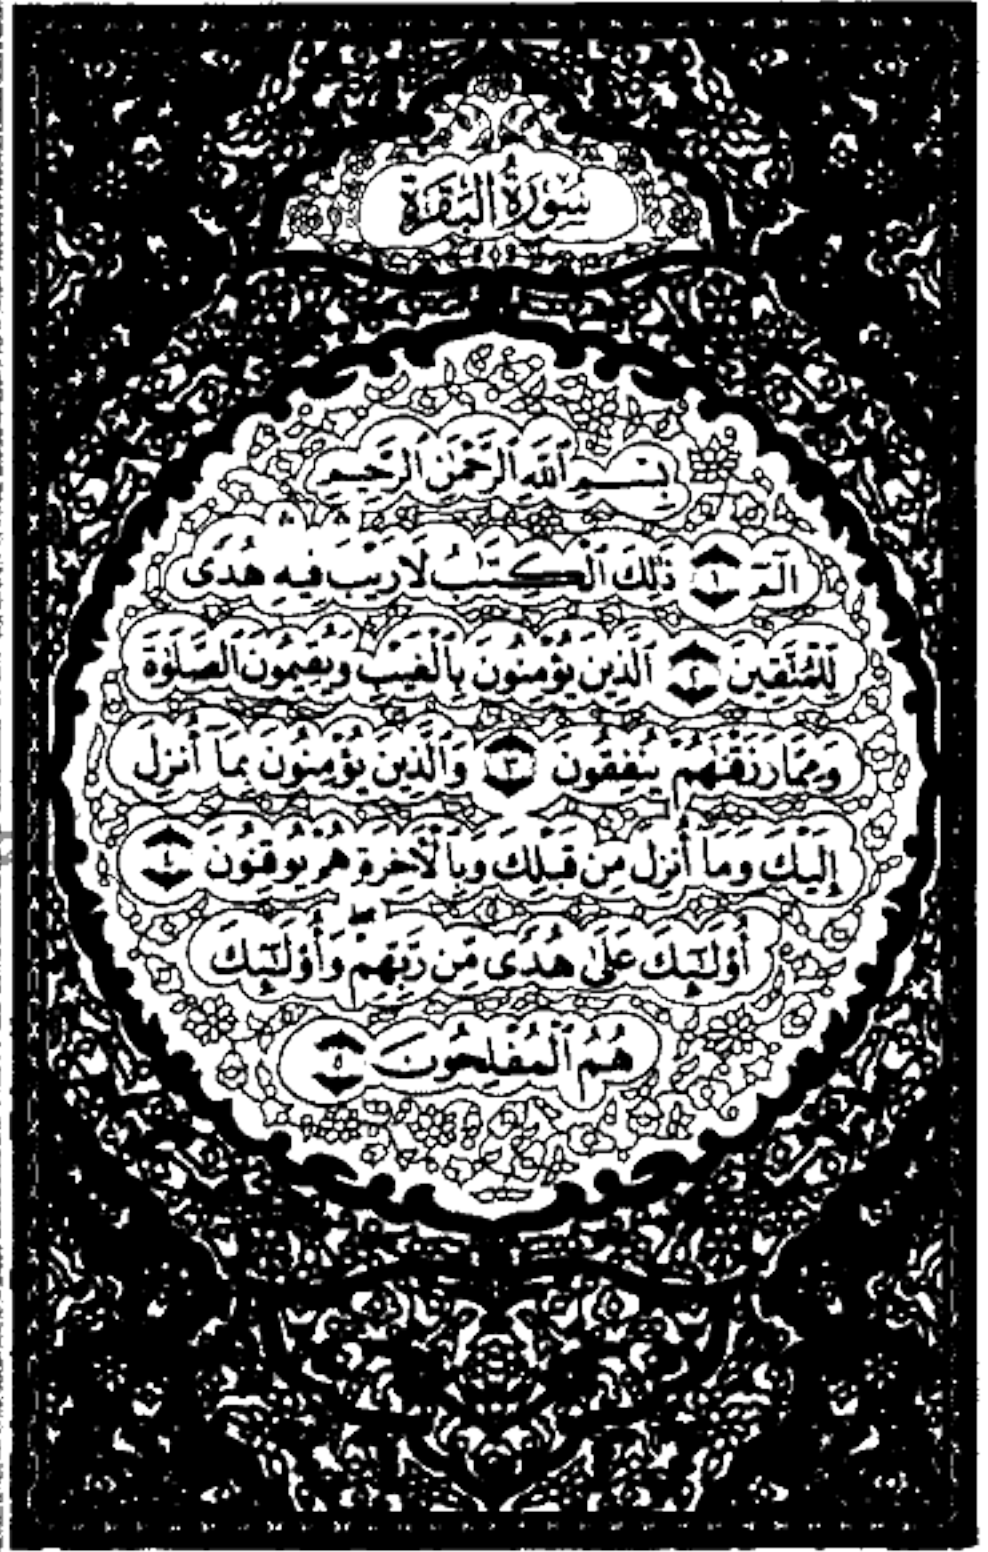 سُورَةُ البَقَرَةِ
بِسْمِ ٱللَّهِ ٱلرَّحْمَٰنِ ٱلرَّحِيمِ
الٓمٓ ١ ذَٰلِكَ ٱلْكِتَٰبُ لَا رَيْبَ فِيهِ هُدًى
لِّلْمُتَّقِينَ ٢ ٱلَّذِينَ يُؤْمِنُونَ بِٱلْغَيْبِ وَيُقِيمُونَ ٱلصَّلَوٰةَ
وَمِمَّا رَزَقْنَٰهُمْ يُنفِقُونَ ٣ وَٱلَّذِينَ يُؤْمِنُونَ بِمَآ أُنزِلَ
إِلَيْكَ وَمَآ أُنزِلَ مِن قَبْلِكَ وَبِٱلْءَاخِرَةِ هُمْ يُوقِنُونَ ٤
أُو۟لَٰٓئِكَ عَلَىٰ هُدًى مِّن رَّبِّهِمْ ۖ وَأُو۟لَٰٓئِكَ
هُمُ ٱلْمُفْلِحُونَ ٥